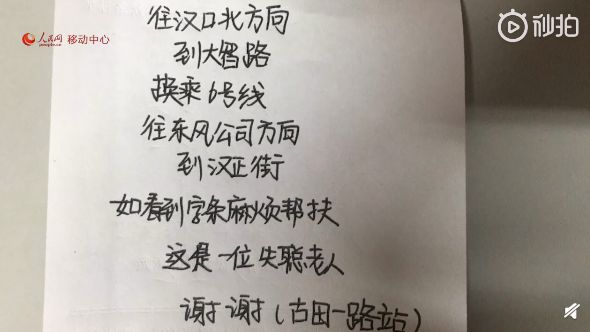 人民网 移动中心
people.cn
秒拍
往汉口北方向
到大智路
换乘6号线
往东风公司方向
到汉正街
如看到字条麻烦帮扶
这是一位失聪老人
谢谢(古田一路站)